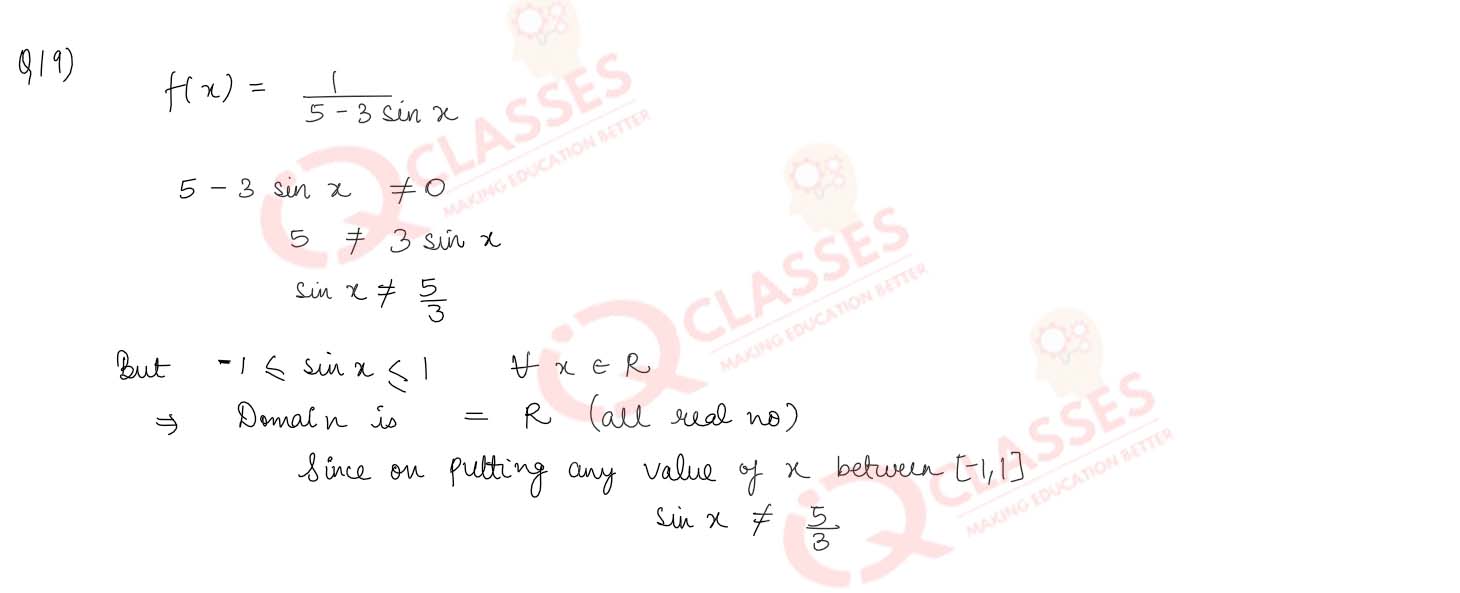 Q19)
f(x) = 1 / 5 - 3 sin x
5 - 3 sin x ≠ 0
5 ≠ 3 sin x
sin x ≠ 5/3
But -1 ≤ sin x ≤ 1 ∀ x ∈ R
⇒ Domain is = R (all real no)
Since on putting any value of x between [-1,1]
sin x ≠ 5/3
iQ CLASSES
MAKING EDUCATION BETTER
iQ CLASSES
MAKING EDUCATION BETTER
iQ CLASSES
MAKING EDUCATION BETTER